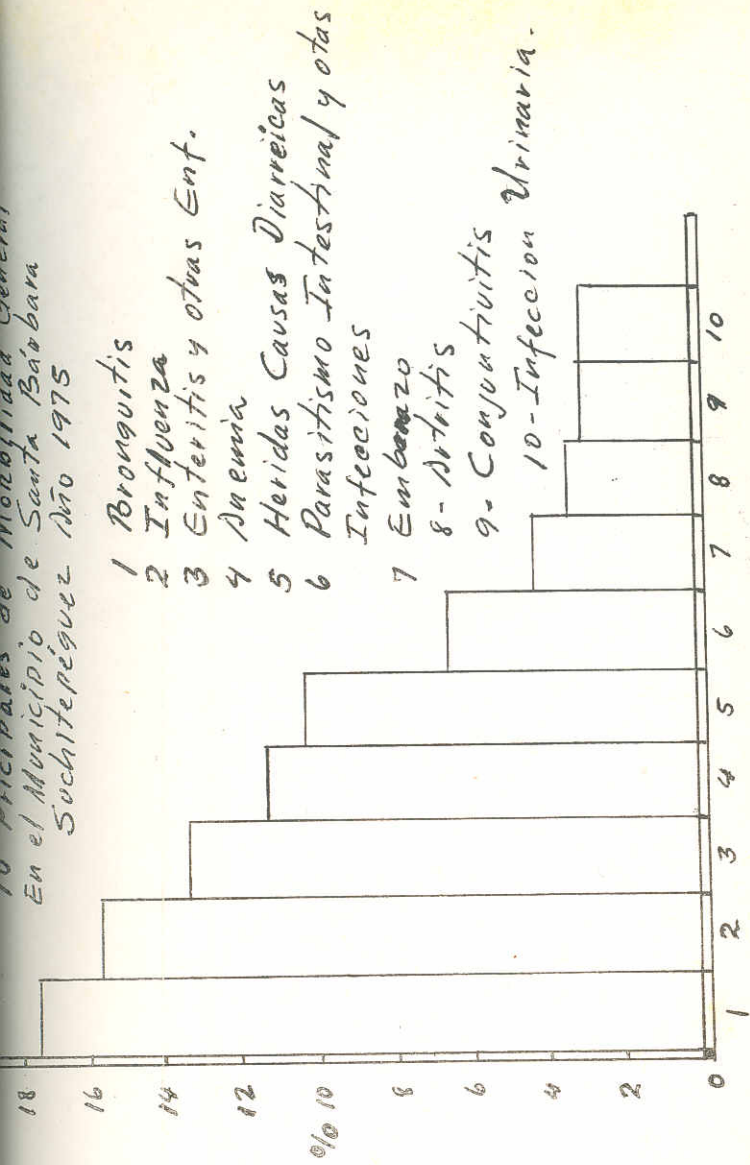 10 Pricipales de Morbilidad General
En el Municipio de Santa Bárbara
Suchitepéquez Año 1975
1 Bronquitis
2 Influenza
3 Enteritis y otras Enf.
4 Anemia
5 Heridas Causas Diarréicas
6 Parasitismo Intestinal y otas
Infecciones
7 Embarazo
8- Artritis
9- Conjuntivitis
10-Infeccion Urinaria.
18
16
14
12
% 10
8
6
4
2
0
1 2 3 4 5 6 7 8 9 10